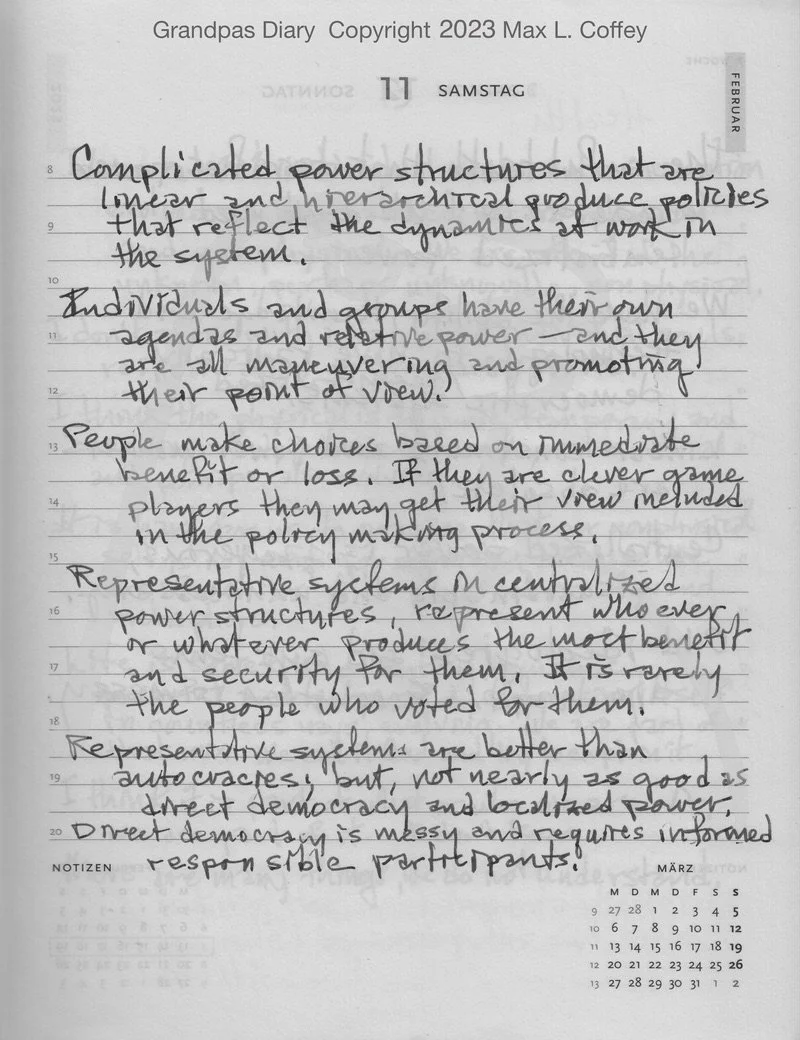 Grandpas Diary Copyright 2023 Max L. Coffey
11 SAMSTAG
FEBRUAR
8 Complicated power structures that are
linear and hierarchical produce policies
9 that reflect the dynamics at work in
the system.
10
Individuals and groups have their own
11 agendas and relative power – and they
are all maneuvering and promoting
12 their point of view.
13 People make choices based on immediate
benefit or loss. If they are clever game
14 players they may get their view included
in the policy making process.
15
Representative systems in centralized
16 power structures, represent who ever
or whatever produces the most benefit
17 and security for them. It is rarely
the people who voted for them.
18
Representative systems are better than
19 autocracies; but, not nearly as good as
direct democracy and localized power.
20 Direct democracy is messy and requires informed
responsible participants.
NOTIZEN
MÄRZ
M D M D F S S
9 27 28 1 2 3 4 5
10 6 7 8 9 10 11 12
11 13 14 15 16 17 18 19
12 20 21 22 23 24 25 26
13 27 28 29 30 31 1 2